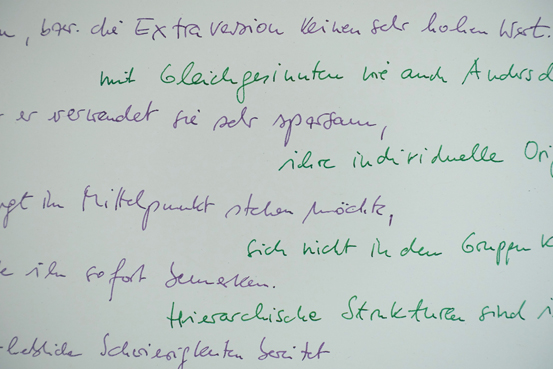 , bzw. die Extraversion keinen sehr hohen Wert.
mit Gleichgesinnten wie auch Andersd
er verwendet sie sehr sparsam,
ihre individuelle Ori
gt im Mittelpunkt stehen möchte,
sich nicht in den Gruppen k
ihn sofort bemerken.
Hierarchische Strukturen sind i
Schwierigkeiten bereitet